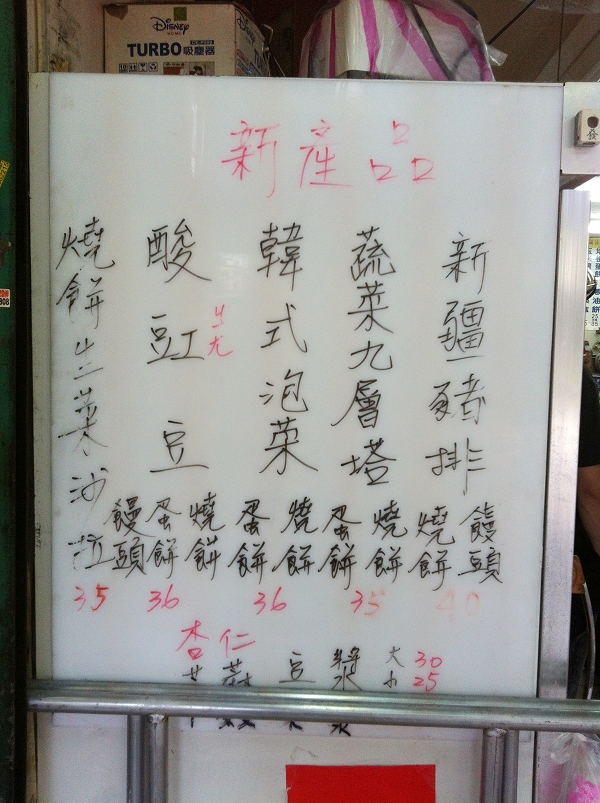 Disney
HOME
TURBO
吸塵器
新產品
新疆豬排
饅頭
燒餅
40
蔬菜九層塔
燒餅
蛋餅
35
韓式泡菜
燒餅
蛋餅
36
酸豇豆
燒餅
蛋餅
饅頭
36
燒餅生菜沙拉
35
杏仁
豆漿
大 30
小 25
發